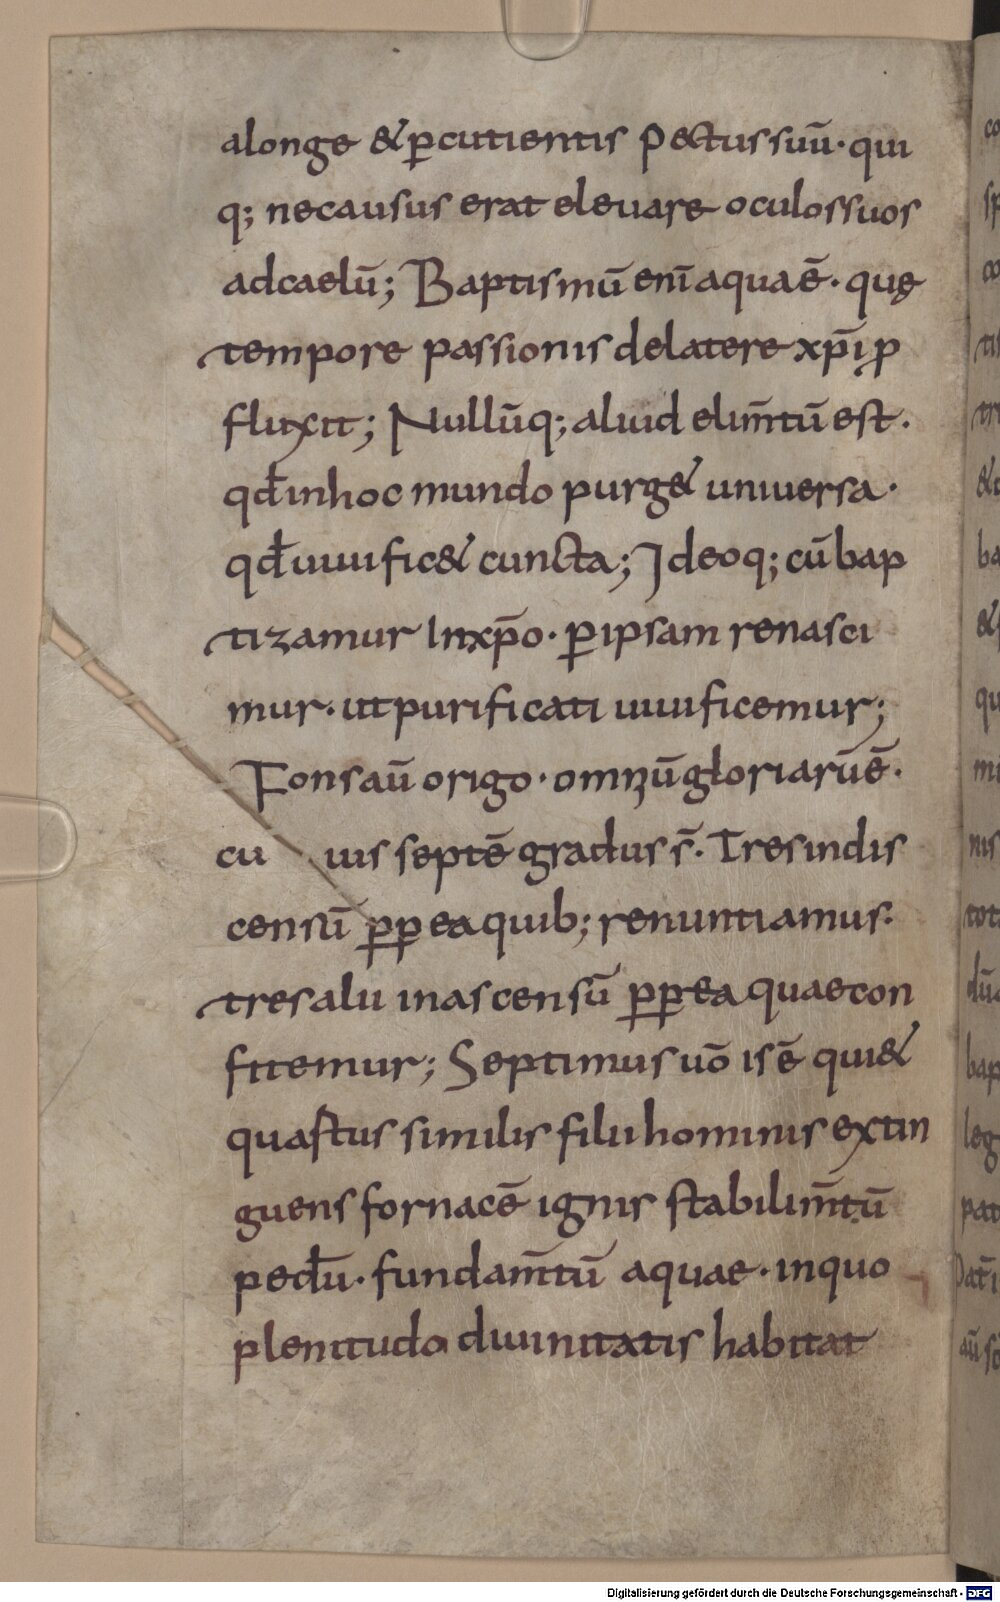 alonge & ꝑcutientis pectus suū· qui
q; nec ausus erat eleuare oculos suos
ad caelū; Baptismū enī aqua ē· quę
tempore passionis de latere xp̄i ꝓ
fluxit; Nullūq; aliud elim̄tū est·
qđ in hoc mundo purg& uniuersa·
qđ uiuific& cuncta; Ideoq; cū bap
tizamur In xp̄o· ꝑ ipsam renasci
mur· ut purificati uiuificemur;
Fons aū origo· omniū gloriarū ē·
cu ius septē gradus s̄· Tres in dis
censū ꝓꝑ ea quib; renuntiamus·
tres alii in ascensū ꝓꝑ ea quae con
fitemur; Septimus uō is ē qui &
quastus similis filii hominis extin
guens fornacē ignis stabilim̄tū
pedū· fundam̄tū aquae· in quo
plenitudo diuinitatis habitat
Digitalisierung gefördert durch die Deutsche Forschungsgemeinschaft - DFG